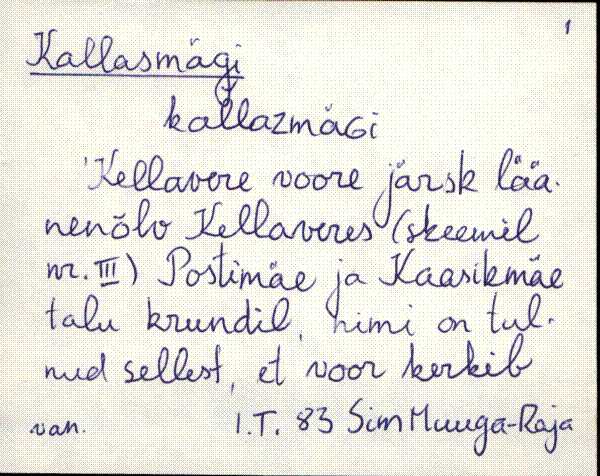 1
Kallasmägi
kallazmäGi
'Kellavere voore järsk lää-
nenõlv Kellaveres (skeemil
nr. III) Postimäe ja Kaasikmäe
talu krundil, nimi on tul-
nud sellest, et voor kerkib
van. I.T. 83 Sim Muuga-Roja